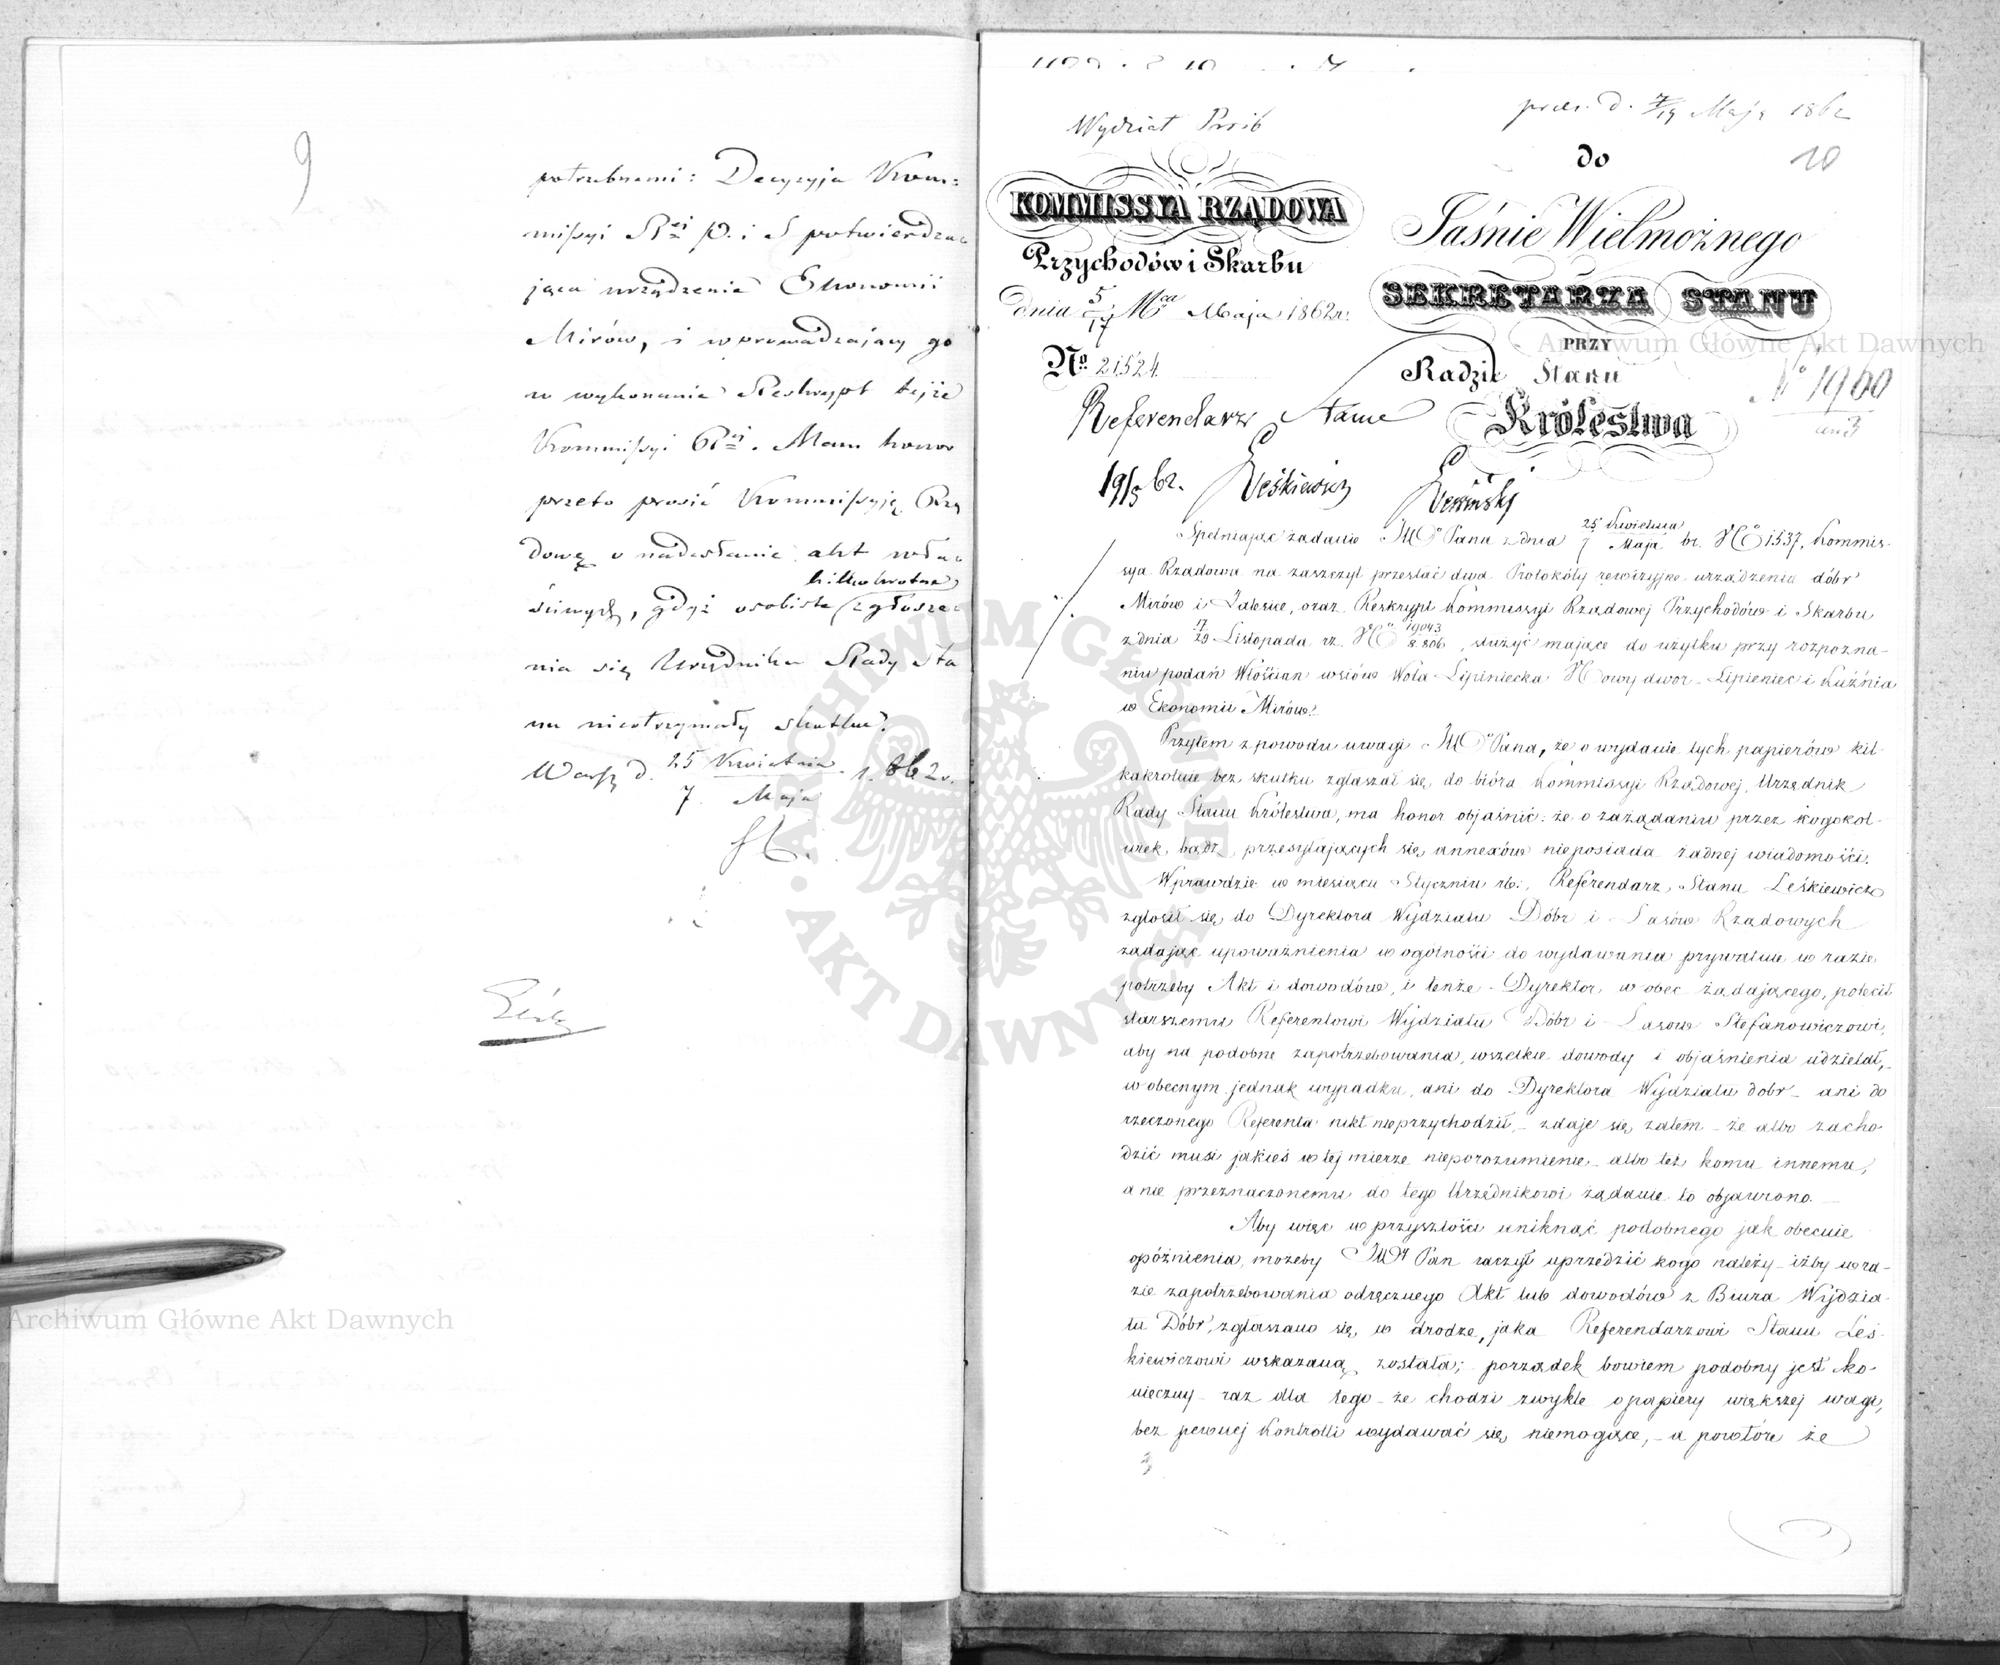 9
potrzebnemi: Decyzyja Kom-
missyi Rei P. i S potwierdza-
jąca urządzenia Ekonomii
Mirów, i wprowadzający go
w wykonanie Reskrypt tejże
Kommissyi Rei. Mam honor
przeto prosić Kommissyją Rzą
dową o nadesłanie akt właś-
kilkokrotne
ciwych, gdyż osobiste zgłosze-
nia się Urzędnika Rady Sta
nu nieotrzymały skutku.
Warsz d. 25 Kwietnia 1862 r.
7 Maja
Wydział Próśb
prez. d. 7/19 Maja 1862
10
KOMMISSYA RZĄDOWA
Przychodów i Skarbu
dnia 5/17 Mca Maja 1862 r.
No. 21524
do
Jaśnie Wielmożnego
SEKRETARZA STANU
PRZY
Radzie Stanu
Królestwa
No 1960
Referendarz Stanu
19/5 62. Leśkiewicz
Spełniając żądanie JWo Pana z dnia 25 Kwietnia / 7 Maja br. No 1537, Kommis-
sya Rządowa ma zaszczyt przesłać dwa Protokóły rewizyjne urządzenia dóbr
Mirów i Zalesice, oraz Reskrypt Kommissyi Rządowej Przychodów i Skarbu
z dnia 17/29 Listopada rz. No 19043/8806, służyć mające do użytku przy rozpozna-
niu podań Włościan wsiów Wola Lipiniecka Nowydwór Lipieniec i Kuźnia
w Ekonomii Mirów.
Przytem z powodu uwagi JWo Pana, że o wydanie tych papierów kil-
kakrotnie bez skutku zgłaszał się do bióra Kommissyi Rządowej, Urzędnik
Rady Stanu Królestwa, ma honor objaśnić: że o zażądaniu przez kogokol-
wiek bądź, przesyłających się annexów nieposiada żadnej wiadomości.
Wprawdzie w miesiącu Styczniu rb:, Referendarz Stanu Leśkiewicz
zgłosił się do Dyrektora Wydziału Dóbr i Lasów Rządowych
żądając upoważnienia w ogólności do wydawania prywatnie w razie
potrzeby Akt i dowodów, i tenże Dyrektor, w obec żądającego, polecił
starszemu Referentowi Wydziału Dóbr i Lasów Stefanowiczowi,
aby na podobne zapotrzebowania, wszelkie dowody i objaśnienia udzielał,
w obecnym jednak wypadku, ani do Dyrektora Wydziału dóbr - ani do
rzeczonego Referenta nikt nieprzychodził, - zdaje się zatem - że albo zacho-
dzić musi jakieś w tej mierze nieporozumienie - albo też komu innemu,
a nie przeznaczonemu do tego Urzędnikowi żądanie to objawiono.
Aby więc w przyszłości uniknąć podobnego jak obecnie
opóźnienia, możeby JWy Pan raczył uprzedzić kogo należy - iżby w ra-
zie zapotrzebowania odręcznego Akt lub dowodów z Biura Wydzia-
łu Dóbr, zgłaszano się w drodze, jaka Referendarzowi Stanu Leś-
kiewiczowi wskazaną została; porządek bowiem podobny jest ko-
nieczny - raz dla tego - że chodzi zwykle o papiery większej wagi,
bez pewnej Kontrolli wydawać się niemogące, - a powtóre że
3
ARCHIWUM GŁÓWNE
AKT DAWNYCH
Archiwum Główne Akt Dawnych
Archiwum Główne Akt Dawnych